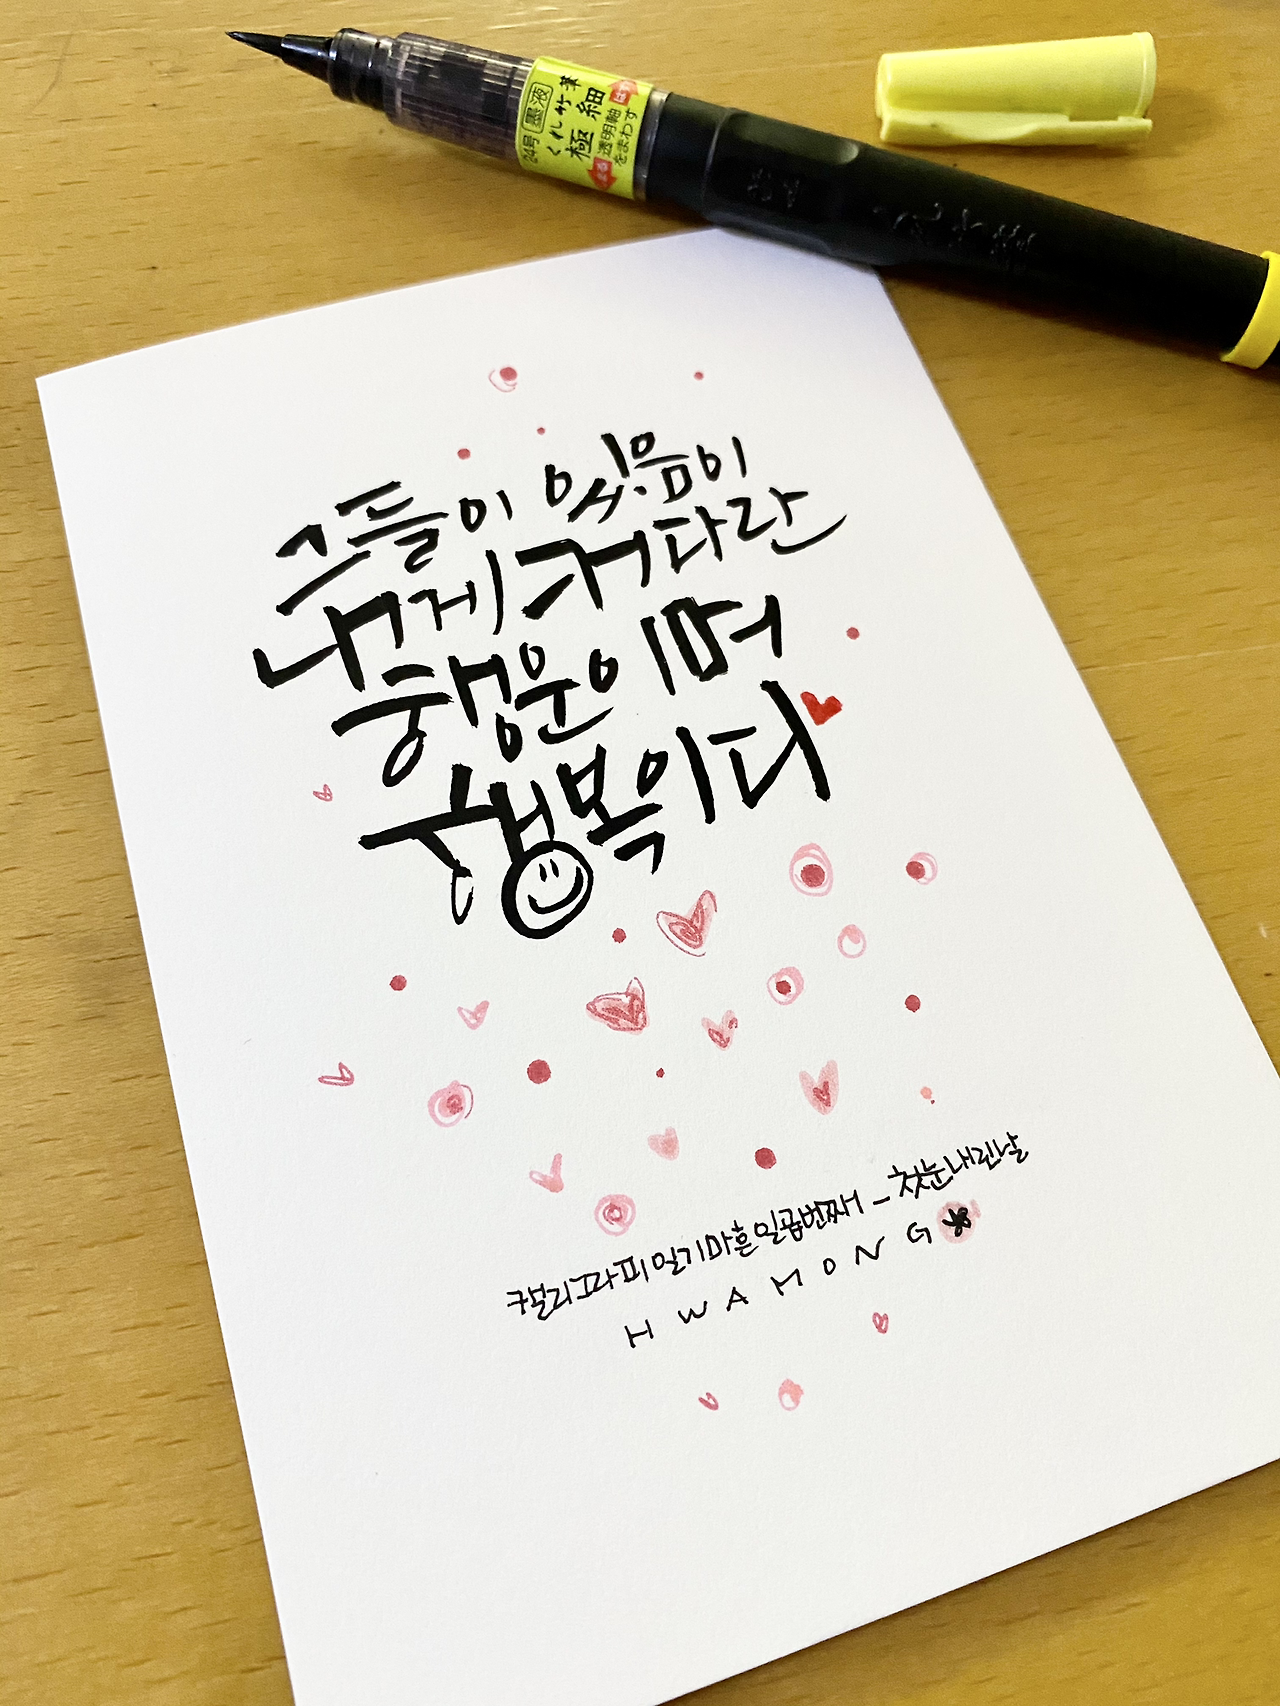 24号 墨液
くれ竹筆
極細
透明軸
をまわす
그들이 있음이
내게 커다란
행운이며
행복이다
캘리그라피일기마흔일곱번째 - 첫눈내린날
HWAMONG